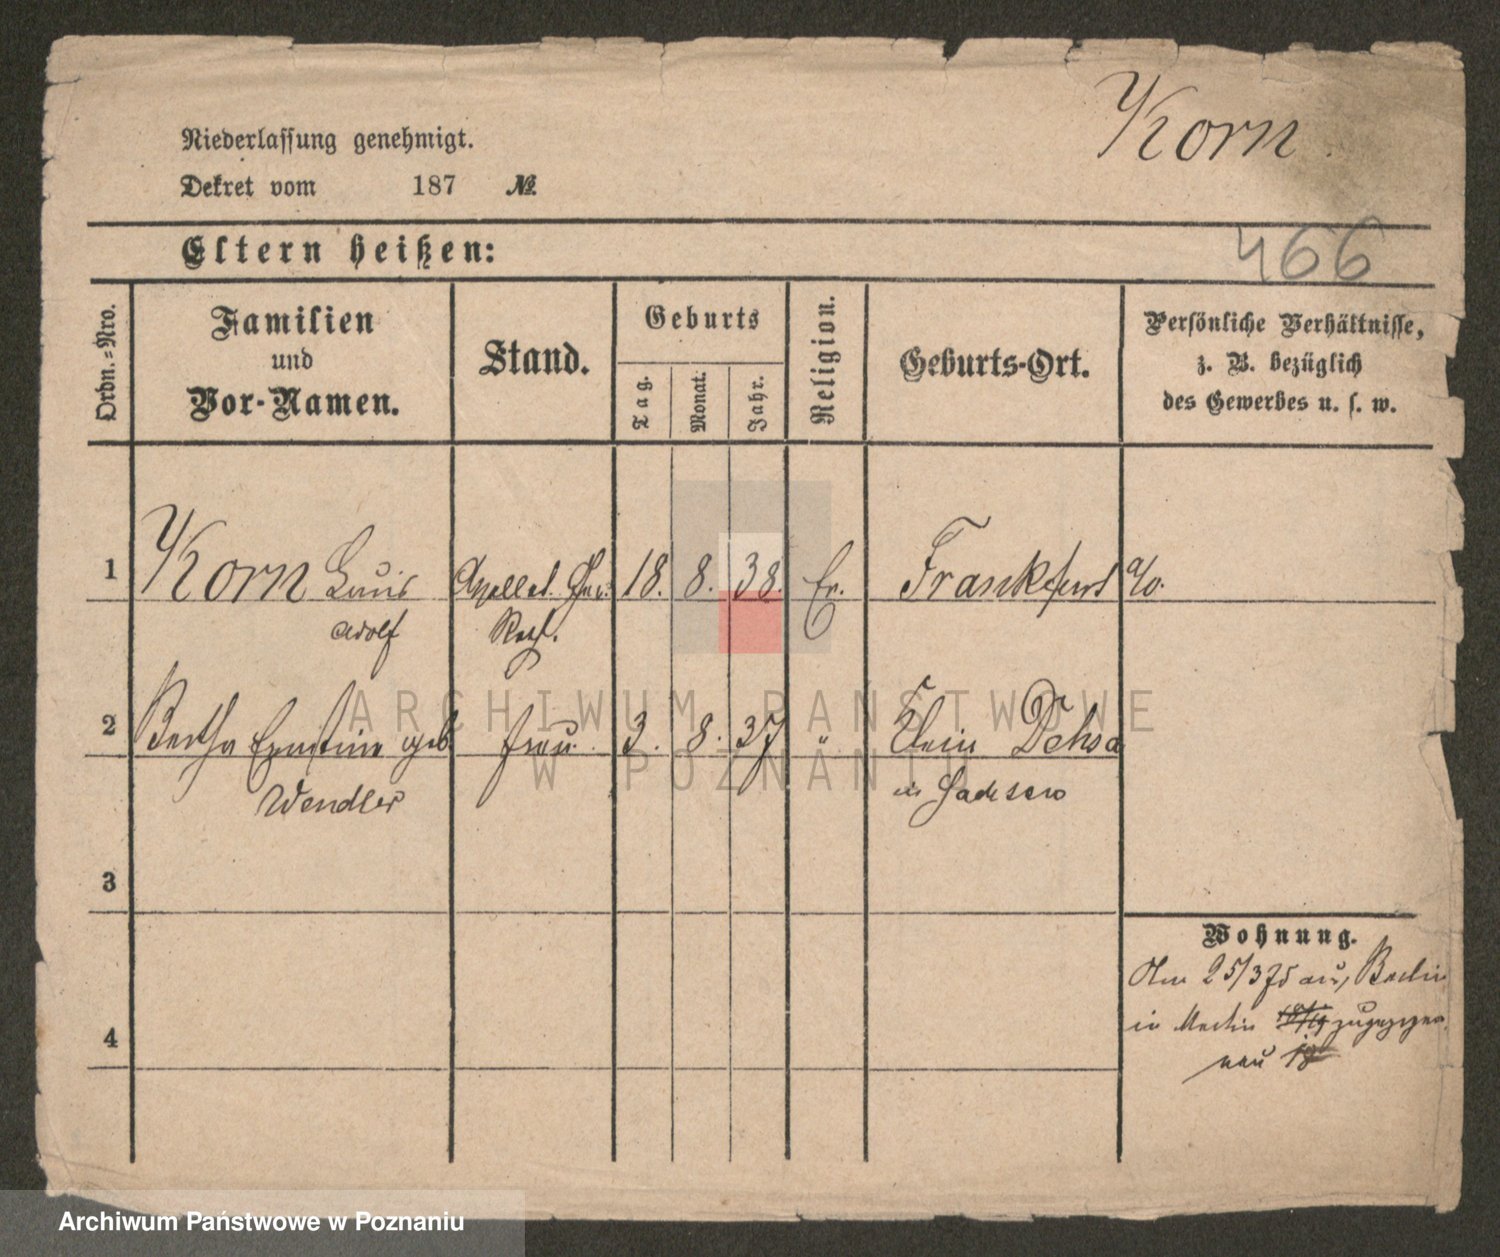 Korn.
Niederlassung genehmigt.
Dekret vom 187 No.
Eltern heißen:
466
Ordn.=Nro.
Familien
und
Vor-Namen.
Stand.
Geburts
Tag.
Monat.
Jahr.
Religion.
Geburts-Ort.
Persönliche Verhältnisse,
z. B. bezüglich
des Gewerbes u. s. w.
1 Korn Louis Appellat. Ger. 18. 8. 38. Ev. Frankfurt a/o.
Adolf Rath.
2 Bertha Ernstine geb Frau 3. 8. 37 " Klein Dehsa
Wendler in Sachsen
3
Wohnung.
Am 25/3 75 aus Berlin
in zugezogen
4
neu
ARCHIWUM PAŃSTWOWE
W POZNANIU
Archiwum Państwowe w Poznaniu